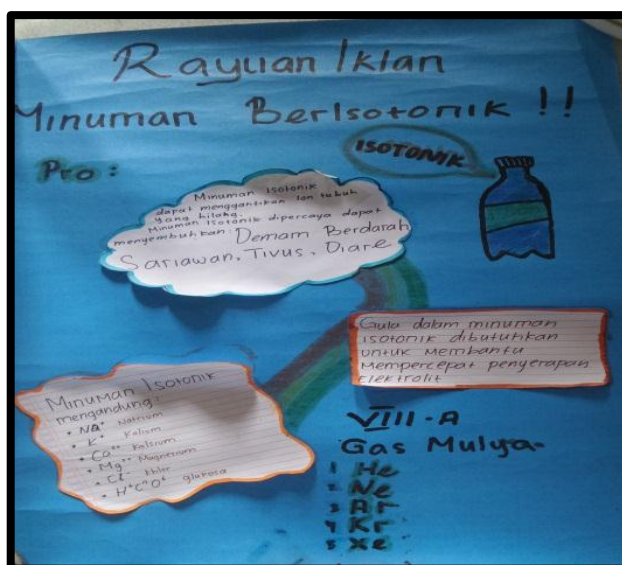 Rayuan Iklan
Minuman BerIsotonik !!
Pro :
ISOTONIK
Minuman Isotonik
dapat menggantikan Ion tubuh
yang hilang.
Minuman Isotonik dipercaya dapat
menyembuhkan: Demam Berdarah
Sariawan, Tivus, Diare
Gula dalam minuman
isotonik dibutuhkan
untuk Membantu
Mempercepat penyerapan
elektrolit
Minuman Isotonik
mengandung:
• Na⁺ Natrium
• K⁺ Kalium
• Ca⁺⁺ Kalsium
• Mg⁺⁺ Magnesium
• Cl⁻ khlor
glukosa
VIII-A
Gas Mulya-
1 He
2 Ne
3 Ar
4 Kr
5 Xe